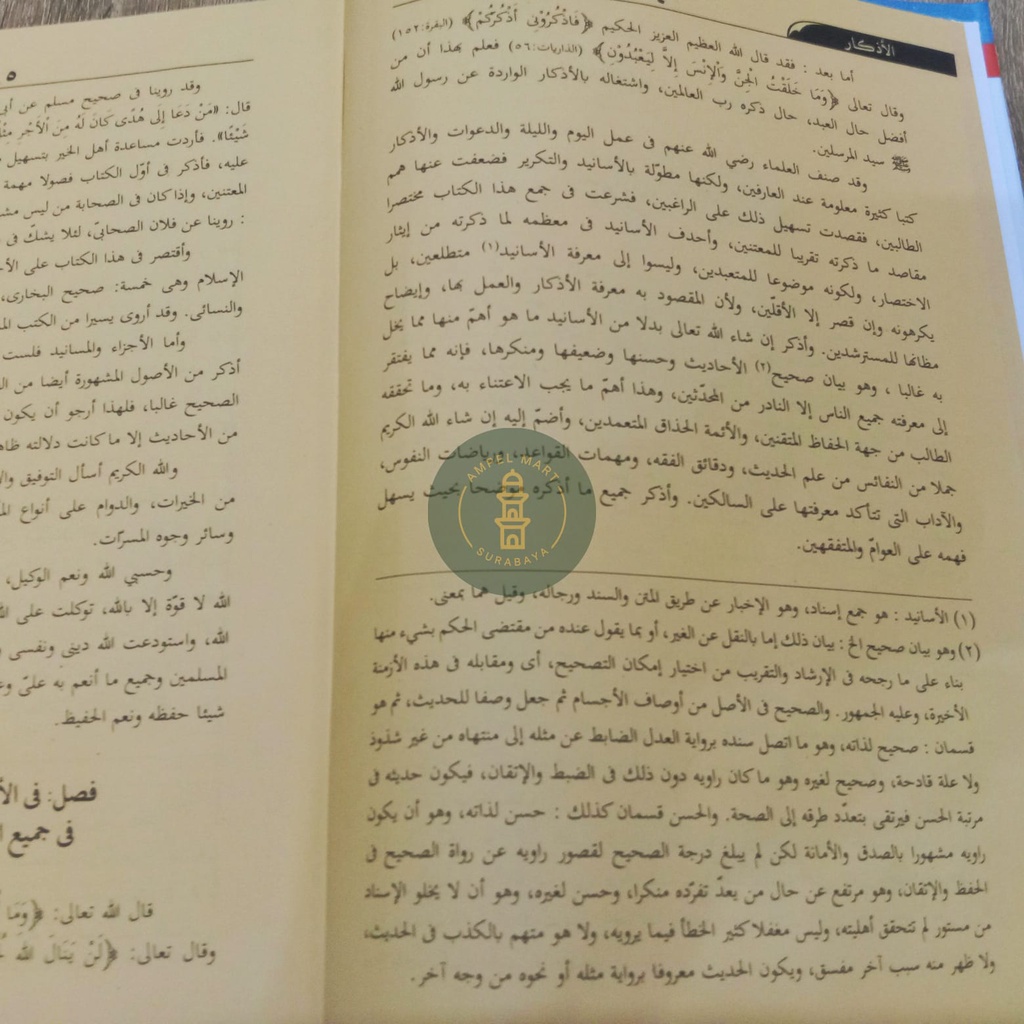 الأذكار
أما بعد : فقد قال الله العظيم العزيز الحكيم ﴿فَاذْكُرُونِى أَذْكُرْكُمْ﴾ (البقرة:١٥٢)
وقال تعالى ﴿وَمَا خَلَقْتُ الْجِنَّ وَالإِنْسَ إِلاَّ لِيَعْبُدُوْنِ﴾ (الذاريات:٥٦) فعلم بهذا أن من
أفضل حال العبد، حال ذكره رب العالمين، واشتغاله بالأذكار الواردة عن رسول الله
ﷺ سيد المرسلين.
وقد صنف العلماء رضي الله عنهم فى عمل اليوم والليلة والدعوات والأذكار
كتبا كثيرة معلومة عند العارفين، ولكنها مطوّلة بالأسانيد والتكرير فضعفت عنها همم
الطالبين، فقصدت تسهيل ذلك على الراغبين، فشرعت فى جمع هذا الكتاب مختصرا
مقاصد ما ذكرته تقريبا للمعتنين، وأحدف الأسانيد فى معظمه لما ذكرته من إيثار
الاختصار، ولكونه موضوعا للمتعبدين، وليسوا إلى معرفة الأسانيد(١) متطلعين، بل
يكرهونه وإن قصر إلا الأقلّين، ولأن المقصود به معرفة الأذكار والعمل بها، وإيضاح
مظانها للمسترشدين. وأذكر إن شاء الله تعالى بدلا من الأسانيد ما هو أهمّ منها مما يخل
به غالبا ، وهو بيان صحيح(٢) الأحاديث وحسنها وضعيفها ومنكرها، فإنه مما يفتقر
إلى معرفته جميع الناس إلا النادر من المحدّثين، وهذا أهمّ ما يجب الاعتناء به، وما تحققه
الطالب من جهة الحفاظ المتقنين، والأئمة الحذاق المتعمدين، وأضمّ إليه إن شاء الله الكريم
جملا من النفائس من علم الحديث، ودقائق الفقه، ومهمات القواعد، ورياضات النفوس،
والآداب التى تتأكد معرفتها على السالكين. وأذكر جميع ما أذكره موضحا بحيث يسهل
فهمه على العوامّ والمتفقهين.
(١) الأسانيد : هو جمع إسناد، وهو الإخبار عن طريق المتن والسند ورجاله، وقيل هما بمعنى.
(٢) وهو بيان صحيح الخ : بيان ذلك إما بالنقل عن الغير، أو بما يقول عنده من مقتضى الحكم بشيء منها
بناء على ما رجحه فى الإرشاد والتقريب من اختيار إمكان التصحيح، أى ومقابله فى هذه الأزمنة
الأخيرة، وعليه الجمهور. والصحيح فى الأصل من أوصاف الأجسام ثم جعل وصفا للحديث، ثم هو
قسمان : صحيح لذاته، وهو ما اتصل سنده برواية العدل الضابط عن مثله إلى منتهاه من غير شذوذ
ولا علة قادحة، وصحيح لغيره وهو ما كان راويه دون ذلك فى الضبط والإتقان، فيكون حديثه فى
مرتبة الحسن فيرتقى بتعدّد طرقه إلى الصحة. والحسن قسمان كذلك : حسن لذاته، وهو أن يكون
راويه مشهورا بالصدق والأمانة لكن لم يبلغ درجة الصحيح لقصور راويه عن رواة الصحيح فى
الحفظ والإتقان، وهو مرتفع عن حال من يعدّ تفرّده منكرا، وحسن لغيره، وهو أن لا يخلو الإسناد
من مستور لم تتحقق أهليته، وليس مغفلا كثير الخطأ فيما يرويه، ولا هو متهم بالكذب فى الحديث،
ولا ظهر منه سبب آخر مفسق، ويكون الحديث معروفا برواية مثله أو نحوه من وجه آخر.
AMPEL MART
SURABAYA
٥
وقد روينا فى صحيح مسلم عن أبى
قال: «مَنْ دَعَا إِلَى هُدًى كَانَ لَهُ مِنَ الأَجْرِ
شَيْئًا». فأردت مساعدة أهل الخير بتسهيل
عليه، فأذكر فى أوّل الكتاب فصولا مهمة
المعتنين، وإذا كان فى الصحابة من ليس
: روينا عن فلان الصحابىّ، لئلا يشكّ فى
وأقتصر فى هذا الكتاب على
الإسلام وهى خمسة: صحيح البخارى،
والنسائى. وقد أروى يسيرا من الكتب
وأما الأجزاء والمسانيد فلست
أذكر من الأصول المشهورة أيضا من
الصحيح غالبا، فلهذا أرجو أن يكون
من الأحاديث إلا ما كانت دلالته
والله الكريم أسأل التوفيق
من الخيرات، والدوام على أنواع
وسائر وجوه المسرّات.
وحسبي الله ونعم الوكيل،
الله لا قوّة إلا بالله، توكلت على
الله، واستودعت الله دينى ونفسى
المسلمين وجميع ما أنعم به علىّ
شيئا حفظه ونعم الحفيظ.
فصل: فى
فى جميع
قال الله تعالى: ﴿وَمَا
وقال تعالى: ﴿لَنْ يَنَالَ اللهَ